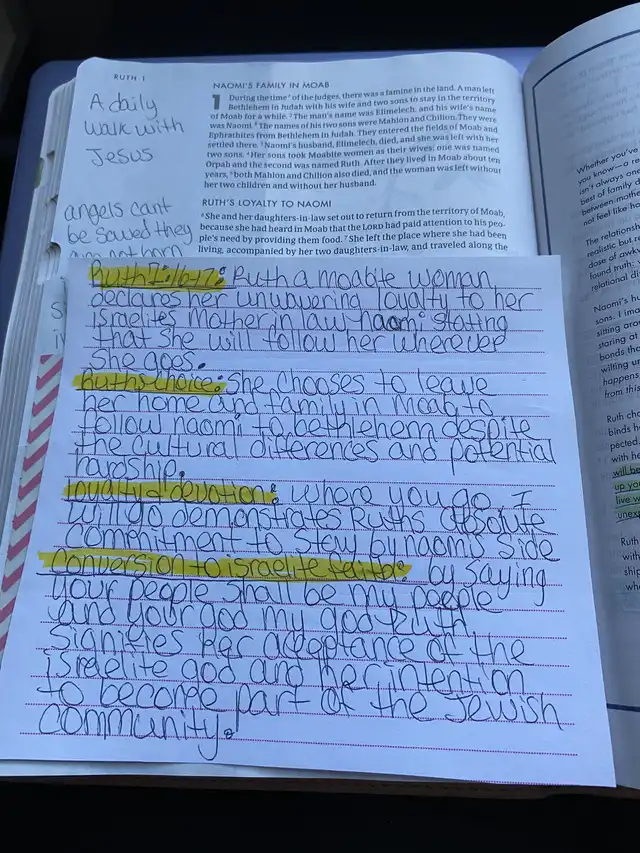 RUTH 1
A daily
walk with
Jesus
angels cant
be saved they
are not born
NAOMI'S FAMILY IN MOAB
1 During the time of the judges, there was a famine in the land. A man left
Bethlehem in Judah with his wife and two sons to stay in the territory
of Moab for a while. 2 The man's name was Elimelech, and his wife's name
was Naomi. The names of his two sons were Mahlon and Chilion. They were
Ephrathites from Bethlehem in Judah. They entered the fields of Moab and
settled there. 3 Naomi's husband, Elimelech, died, and she was left with her
two sons. 4 Her sons took Moabite women as their wives: one was named
Orpah and the second was named Ruth. After they lived in Moab about ten
years, 5 both Mahlon and Chilion also died, and the woman was left without
her two children and without her husband.
RUTH'S LOYALTY TO NAOMI
6 She and her daughters-in-law set out to return from the territory of Moab,
because she had heard in Moab that the LORD had paid attention to his peo-
ple's need by providing them food. 7 She left the place where she had been
living, accompanied by her two daughters-in-law, and traveled along the
Ruth 1:16-17: Ruth a moabie woman
declares her unwavering loyalty to her
israelites Mother in law naomi stating
that she will follow her wherever
she goes.
Ruths choice: She chooses to leave
her home and family in Moab to
follow naomi to bethlehem despite
the cultural differences and potential
hardship.
loyalty & devotion: where you go I
will go demonstrates Ruths absolute
commitment to stay by naomis side
conversion to israelite faith: by saying
your people shall be my people
and your god my god Ruth
signifies her acceptance of the
israelite god and her intention
to become part of the Jewish
community.
Whether you've
you know—a re
isn't always one
best of family d
between mother
not feel like ho
The relationshi
realistic but m
dose of awkw
found truth:
relational di
Naomi's hu
sons. I ima
sitting arou
staring at
bonds tha
wilting un
happens,
from this
Ruth cho
binds he
pected.
with he
will be
up you
live w
unexp
Ruth
with
ship
whe